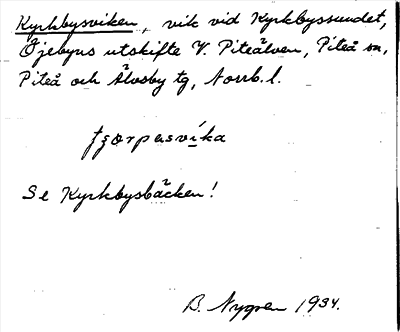 Kyrkbysviken, vik vid Kyrkbyssundet,
Öjebyns utskifte V. Piteälven, Piteå sn,
Piteå och Älvsby tg, Norrb. l.
Se Kyrkbysbäcken!
B. Nygren 1934.